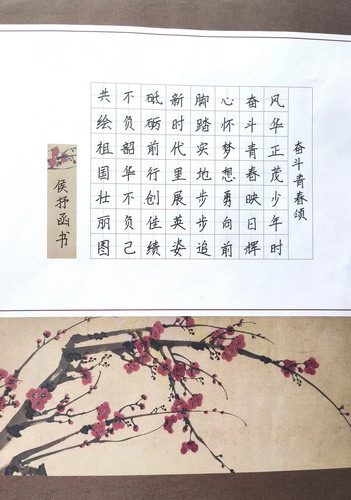 奋斗青春颂
风华正茂少年时
奋斗青春映日辉
心怀梦想勇向前
脚踏实地步步追
新时代里展英姿
砥砺前行创佳绩
不负韶华不负己
共绘祖国壮丽图
侯抒函书